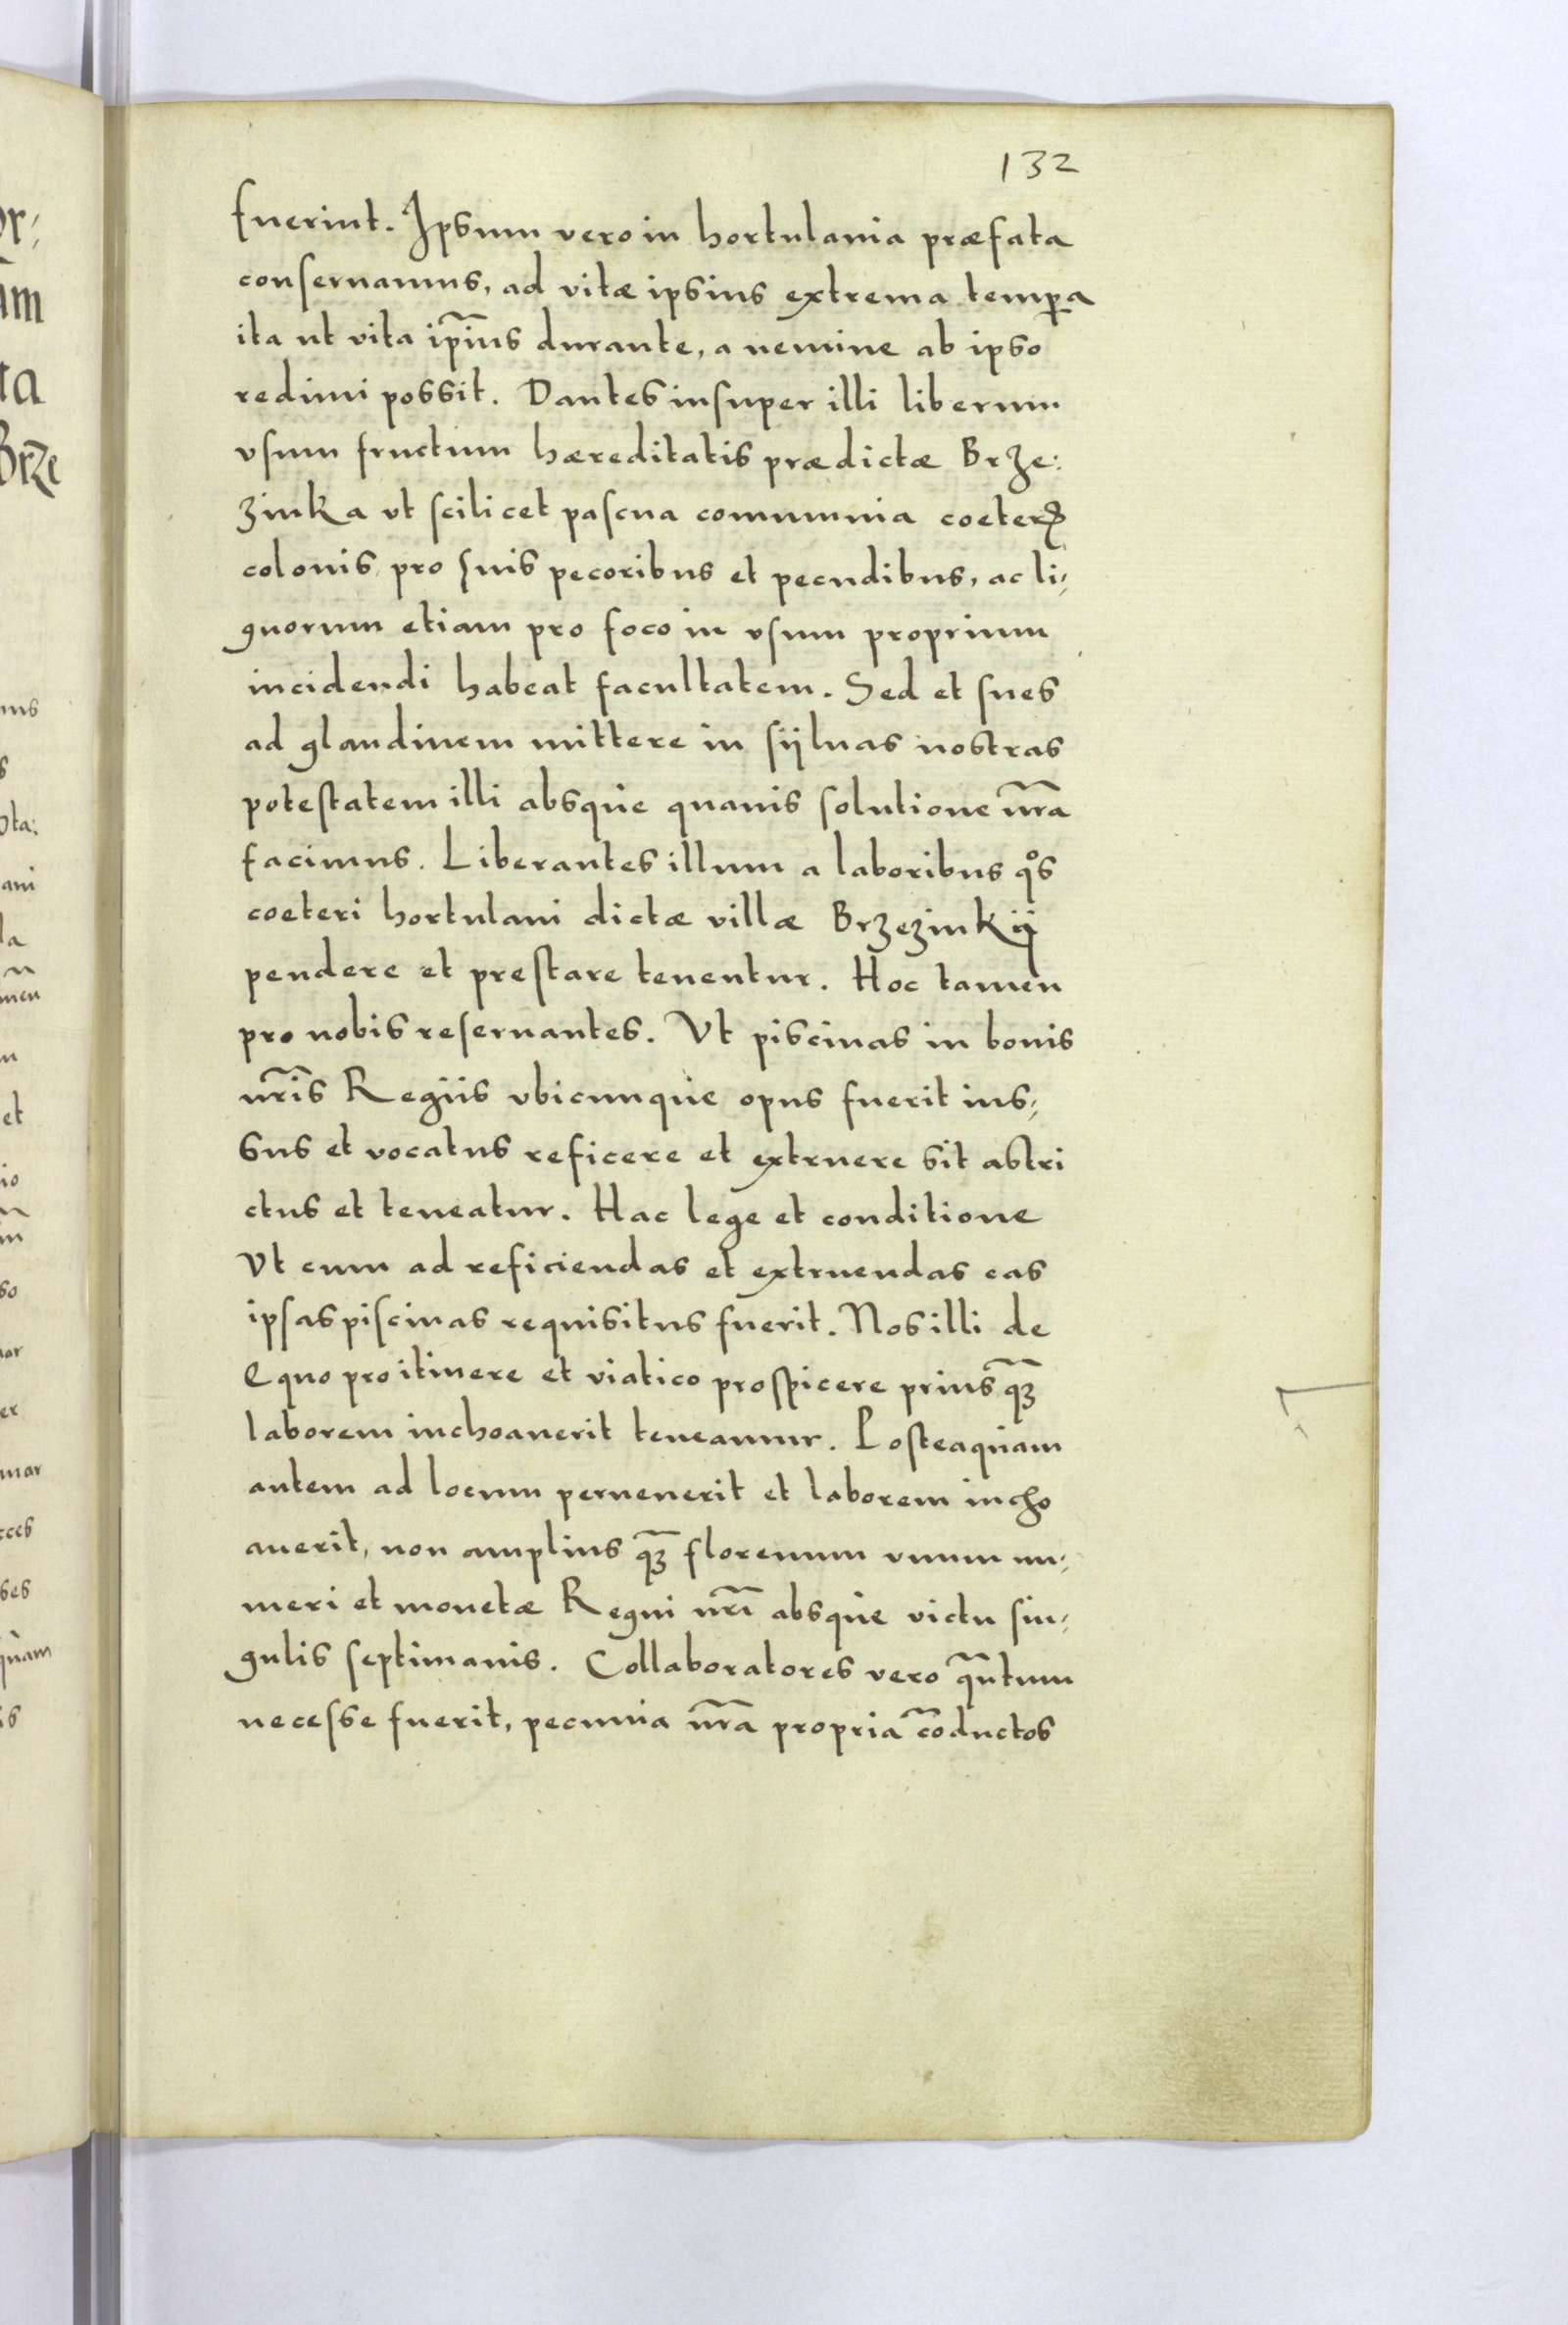 132
fuerint. Ipsum vero in hortulania præfata
conseruamus, ad vitæ ipsius extrema tempꝑa
ita ut vita ip̃ius durante, a nemine ab ipso
redimi possit. Dantes insuper illi liberum
vsum fructum hæreditatis prædictæ Brze:
zinka ut scilicet pascua communia coeterꝭ
colonis, pro suis pecoribus et pecudibus, ac li⸗
gnorum etiam pro foco in vsum proprium
incidendi habeat facultatem. Sed et sues
ad glandinem mittere in sÿluas nostras
potestatem illi absque quauis solutione nr̃a
facimus. Liberantes illum a laboribus qͦs
coeteri hortulani dictæ villæ Brzezinkÿ
pendere et prestare tenentur. Hoc tamen
pro nobis reseruantes. Vt piscinas in bonis
nr̃is Regiis vbicunque opus fuerit ius⸗
sus et vocatus reficere et extruere sit astri
ctus et teneatur. Hac lege et conditione
Vt cum ad reficiendas et extruendas eas
ipsas piscinas requisitus fuerit. Nos illi de
Equo pro itinere et viatico prospicere prius qꝫ̃
laborem inchoauerit teneamur. Posteaquam
autem ad locum peruenerit et laborem incho
auerit, non amplius qꝫ̃ florenum vnum nu⸗
meri et monetæ Regni nr̃i absque victu sin⸗
gulis septimanis. Collaboratores vero qñtum
necesse fuerit, pecunia nr̃a propria cõductos